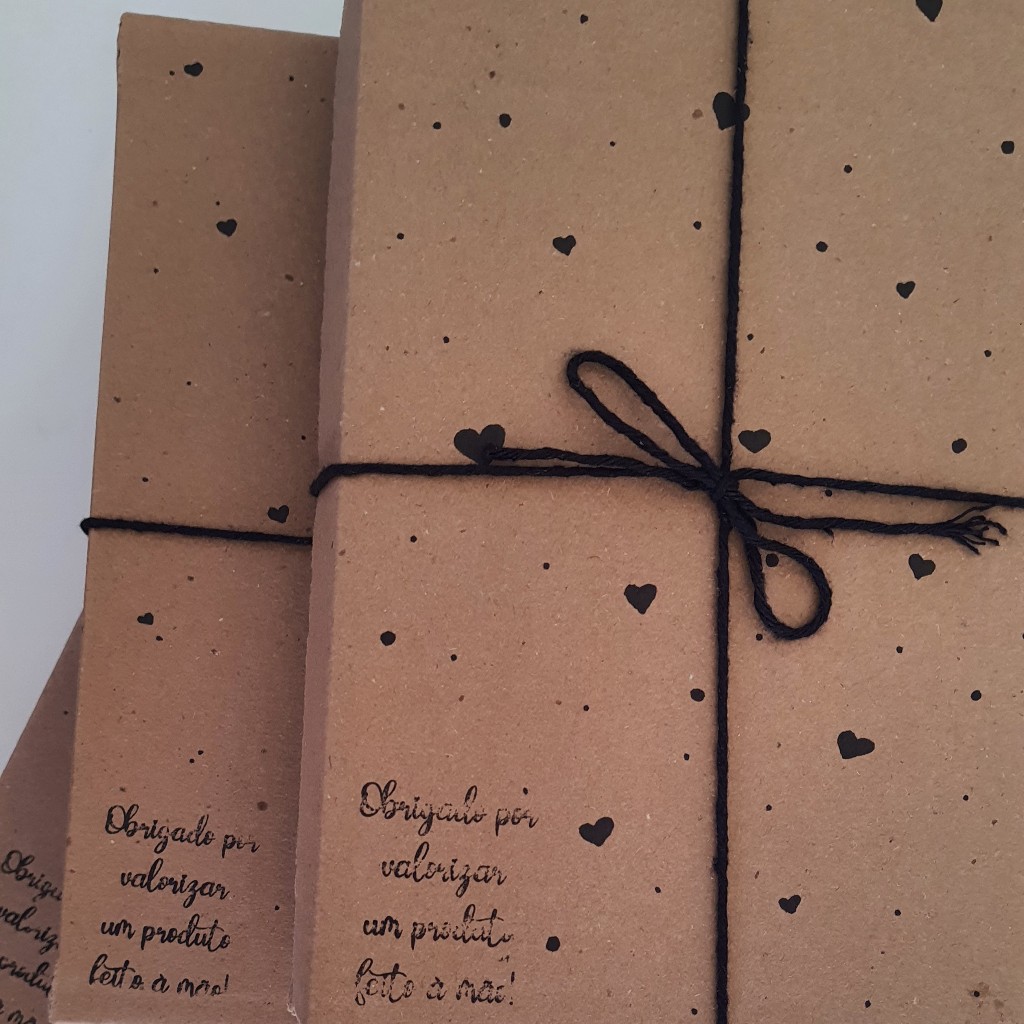 Obrigado por
valorizar
um produto
feito à mão!
Obrigado por
valorizar
um produto
feito à mão!